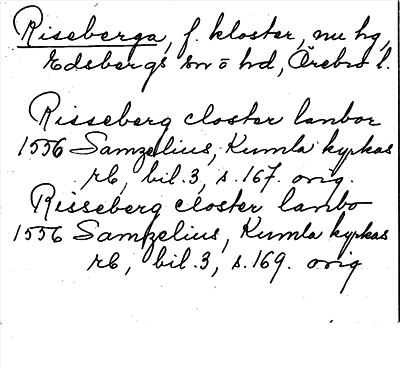 Riseberga, f. kloster, nu hg,
Edsbergs sn o hd, Örebro l.
Risseberg closter lanbor
1556 Samzelius, Kumla kyrkas
rb, bil. 3, s. 167. orig.
Risseberg closter lanbo
1556 Samzelius, Kumla kyrkas
rb, bil. 3, s. 169. orig